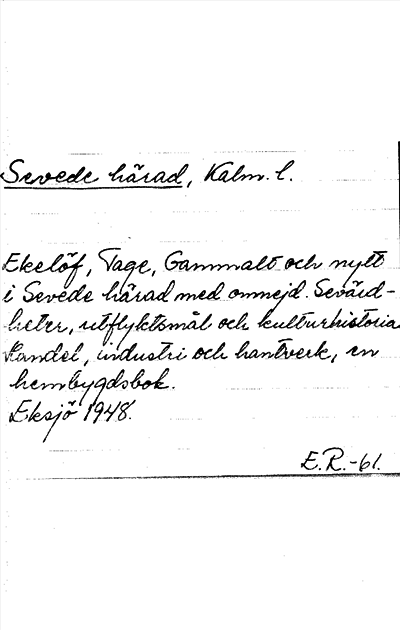 Sevede härad, Kalm. l.
Ekelöf, Tage, Gammalt och nytt
i Sevede härad med omnejd. Sevärd-
heter, utflyktsmål och kulturhistoria
Handel, industri och hantverk, en
hembygdsbok.
Eksjö 1948.
E.R.-61.